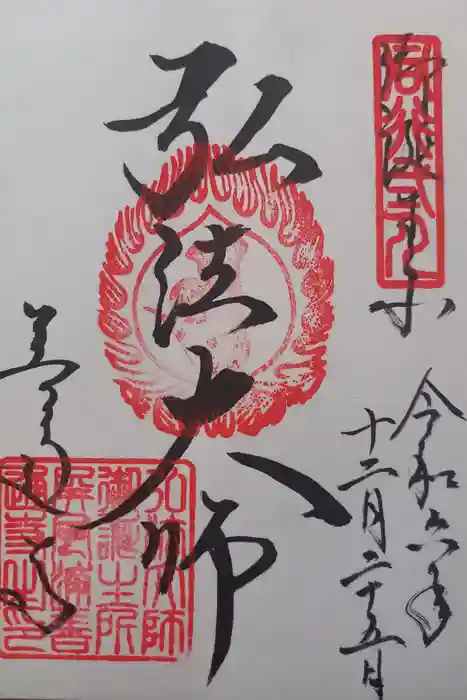 御誕生所
令和六年
十二月二十五日
弘法大師
善通寺
弘法大師
御誕生院
屏風浦善
通寺之印